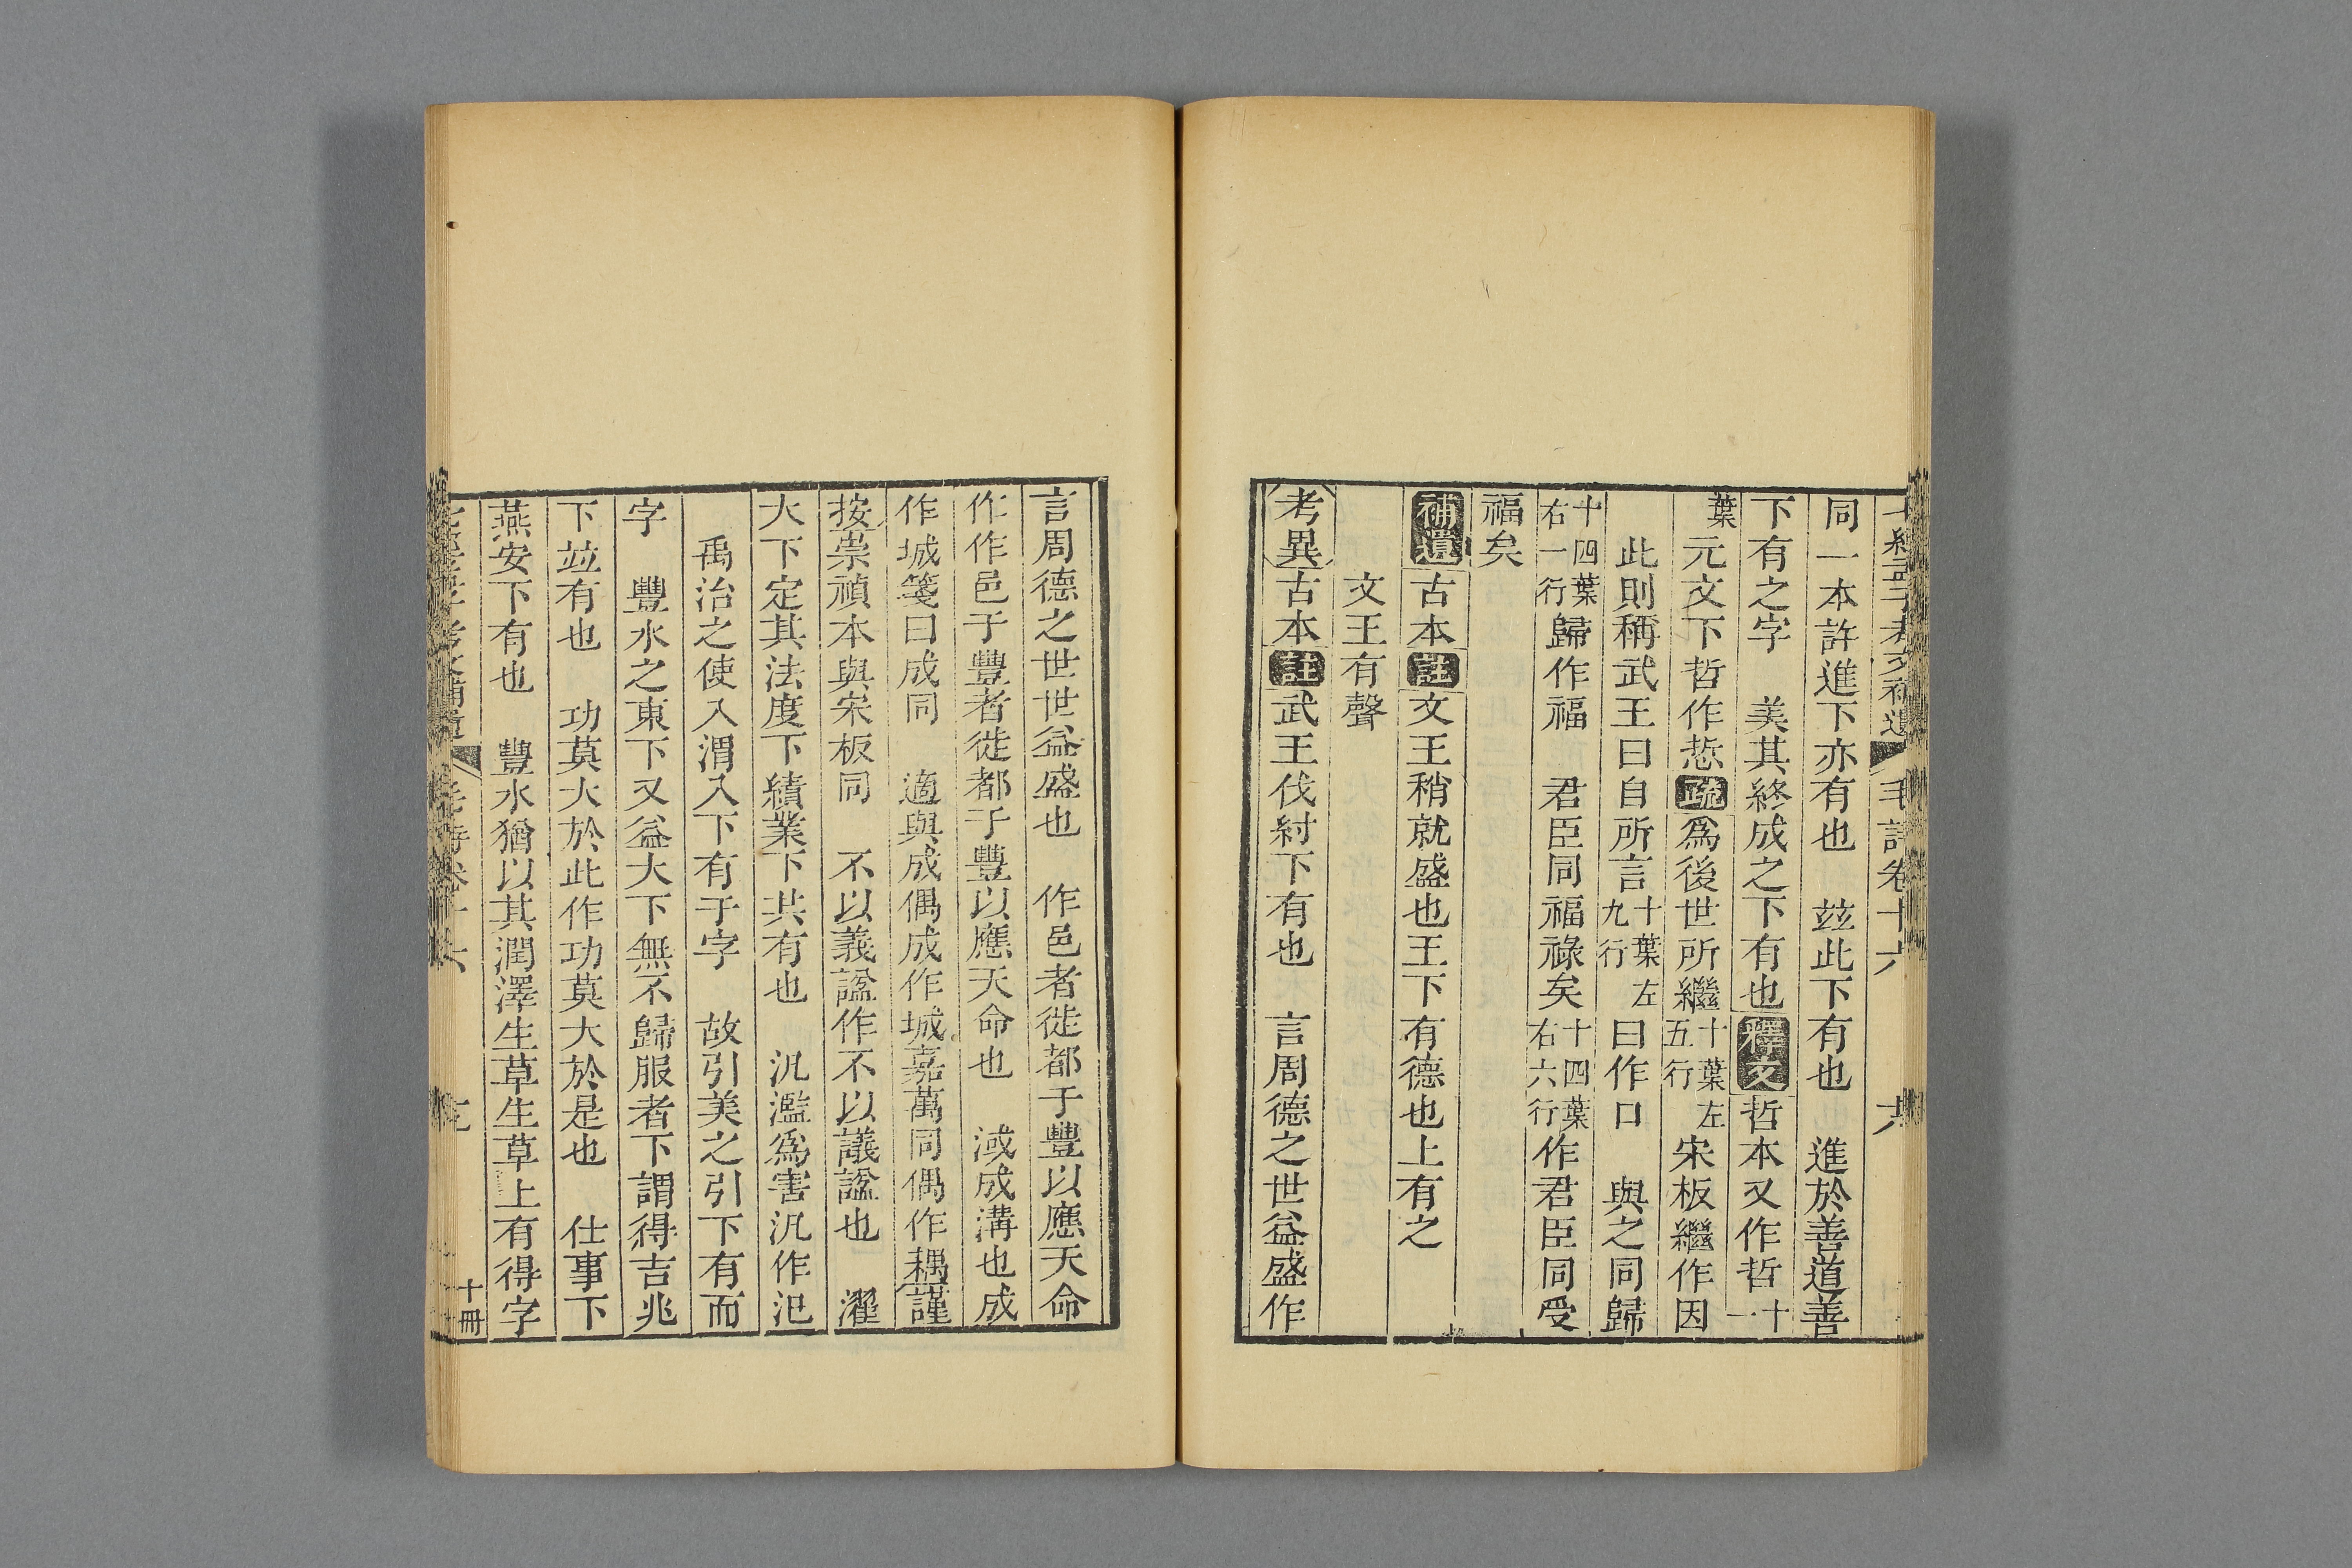 毛詩卷十六
同一本許進下亦有也 玆此下有也 進於善道善
下有之字 美其終成之下有也釋文哲本又作哲十一
葉元文下哲作悊疏爲後世所繼十葉左五行宋板繼作因
此則稱武王曰自所言十葉左九行曰作口 與之同歸
十四葉右一行歸作福 君臣同福祿矣十四葉右六行作君臣同受
福矣
補遺古本註文王稍就盛也王下有德也上有之
文王有聲
考異古本註武王伐紂下有也 言周德之世益盛作
言周德之世世益盛也 作邑者徙都于豐以應天命
作作邑于豐者徙都于豐以應天命也 淢成溝也成
作城箋曰成同 適與成偶成作城嘉萬同偶作耦謹
按崇禎本與宋板同 不以義諡作不以議諡也 濯
大下定其法度下績業下共有也 汎濫爲害汎作氾
禹治之使入渭入下有于字 故引美之引下有而
字 豐水之東下又益大下無不歸服者下謂得吉兆
下竝有也 功莫大於此作功莫大於是也 仕事下
燕安下有也 豐水猶以其潤澤生草生草上有得字
十冊